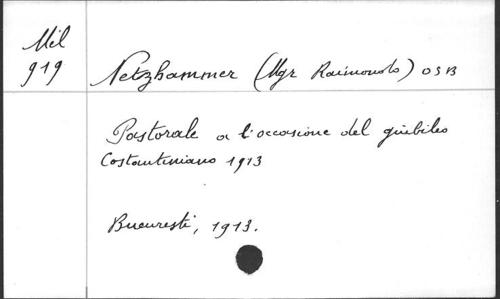 Mil
919
Netzhammer (Mgr Raimondo) OSB
Pastorale a l'occasione del giubileo
Costantiniano 1913
Bucuresti, 1913.